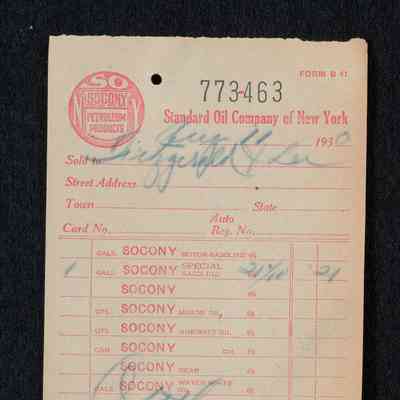 FORM B 41
SO
SOCONY
PETROLEUM
PRODUCTS
773463
Standard Oil Company of New York
1930
Sold to Fitzgerald & Lee
Street Address
Town State
Card No. Auto Reg. No.
GALS. SOCONY MOTOR GASOLINE @
1 GALS. SOCONY SPECIAL GASOLINE 21 21
SOCONY @
QTS. SOCONY @
QTS. SOCONY AIRCRAFT OIL @
CAN SOCONY OIL @
SOCONY GEAR @
GALS. SOCONY